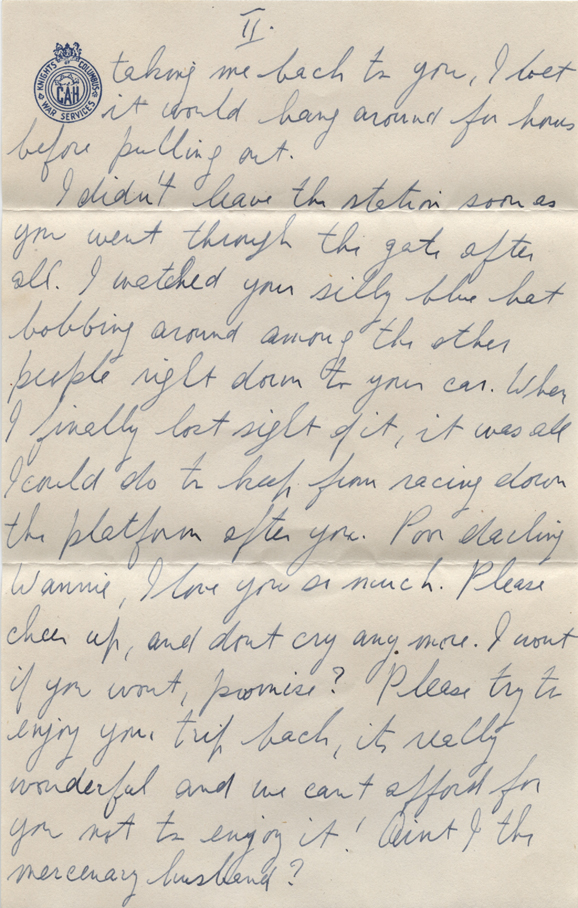 II.
KNIGHTS OF COLUMBUS
CAH
WAR SERVICES
taking me back to you, I bet
it would hang around for hours
before pulling out.
I didn't leave the station soon as
you went through the gate after
all. I watched your silly blue hat
bobbing around among the other
people right down to your car. When
I finally lost sight of it, it was all
I could do to keep from racing down
the platform after you. Poor darling
Wannie, I love you so much. Please
cheer up, and dont cry any more. I wont
if you wont, promise? Please try to
enjoy your trip back, its really
wonderful and we can't afford for
you not to enjoy it! Aint I the
mercenary husband?